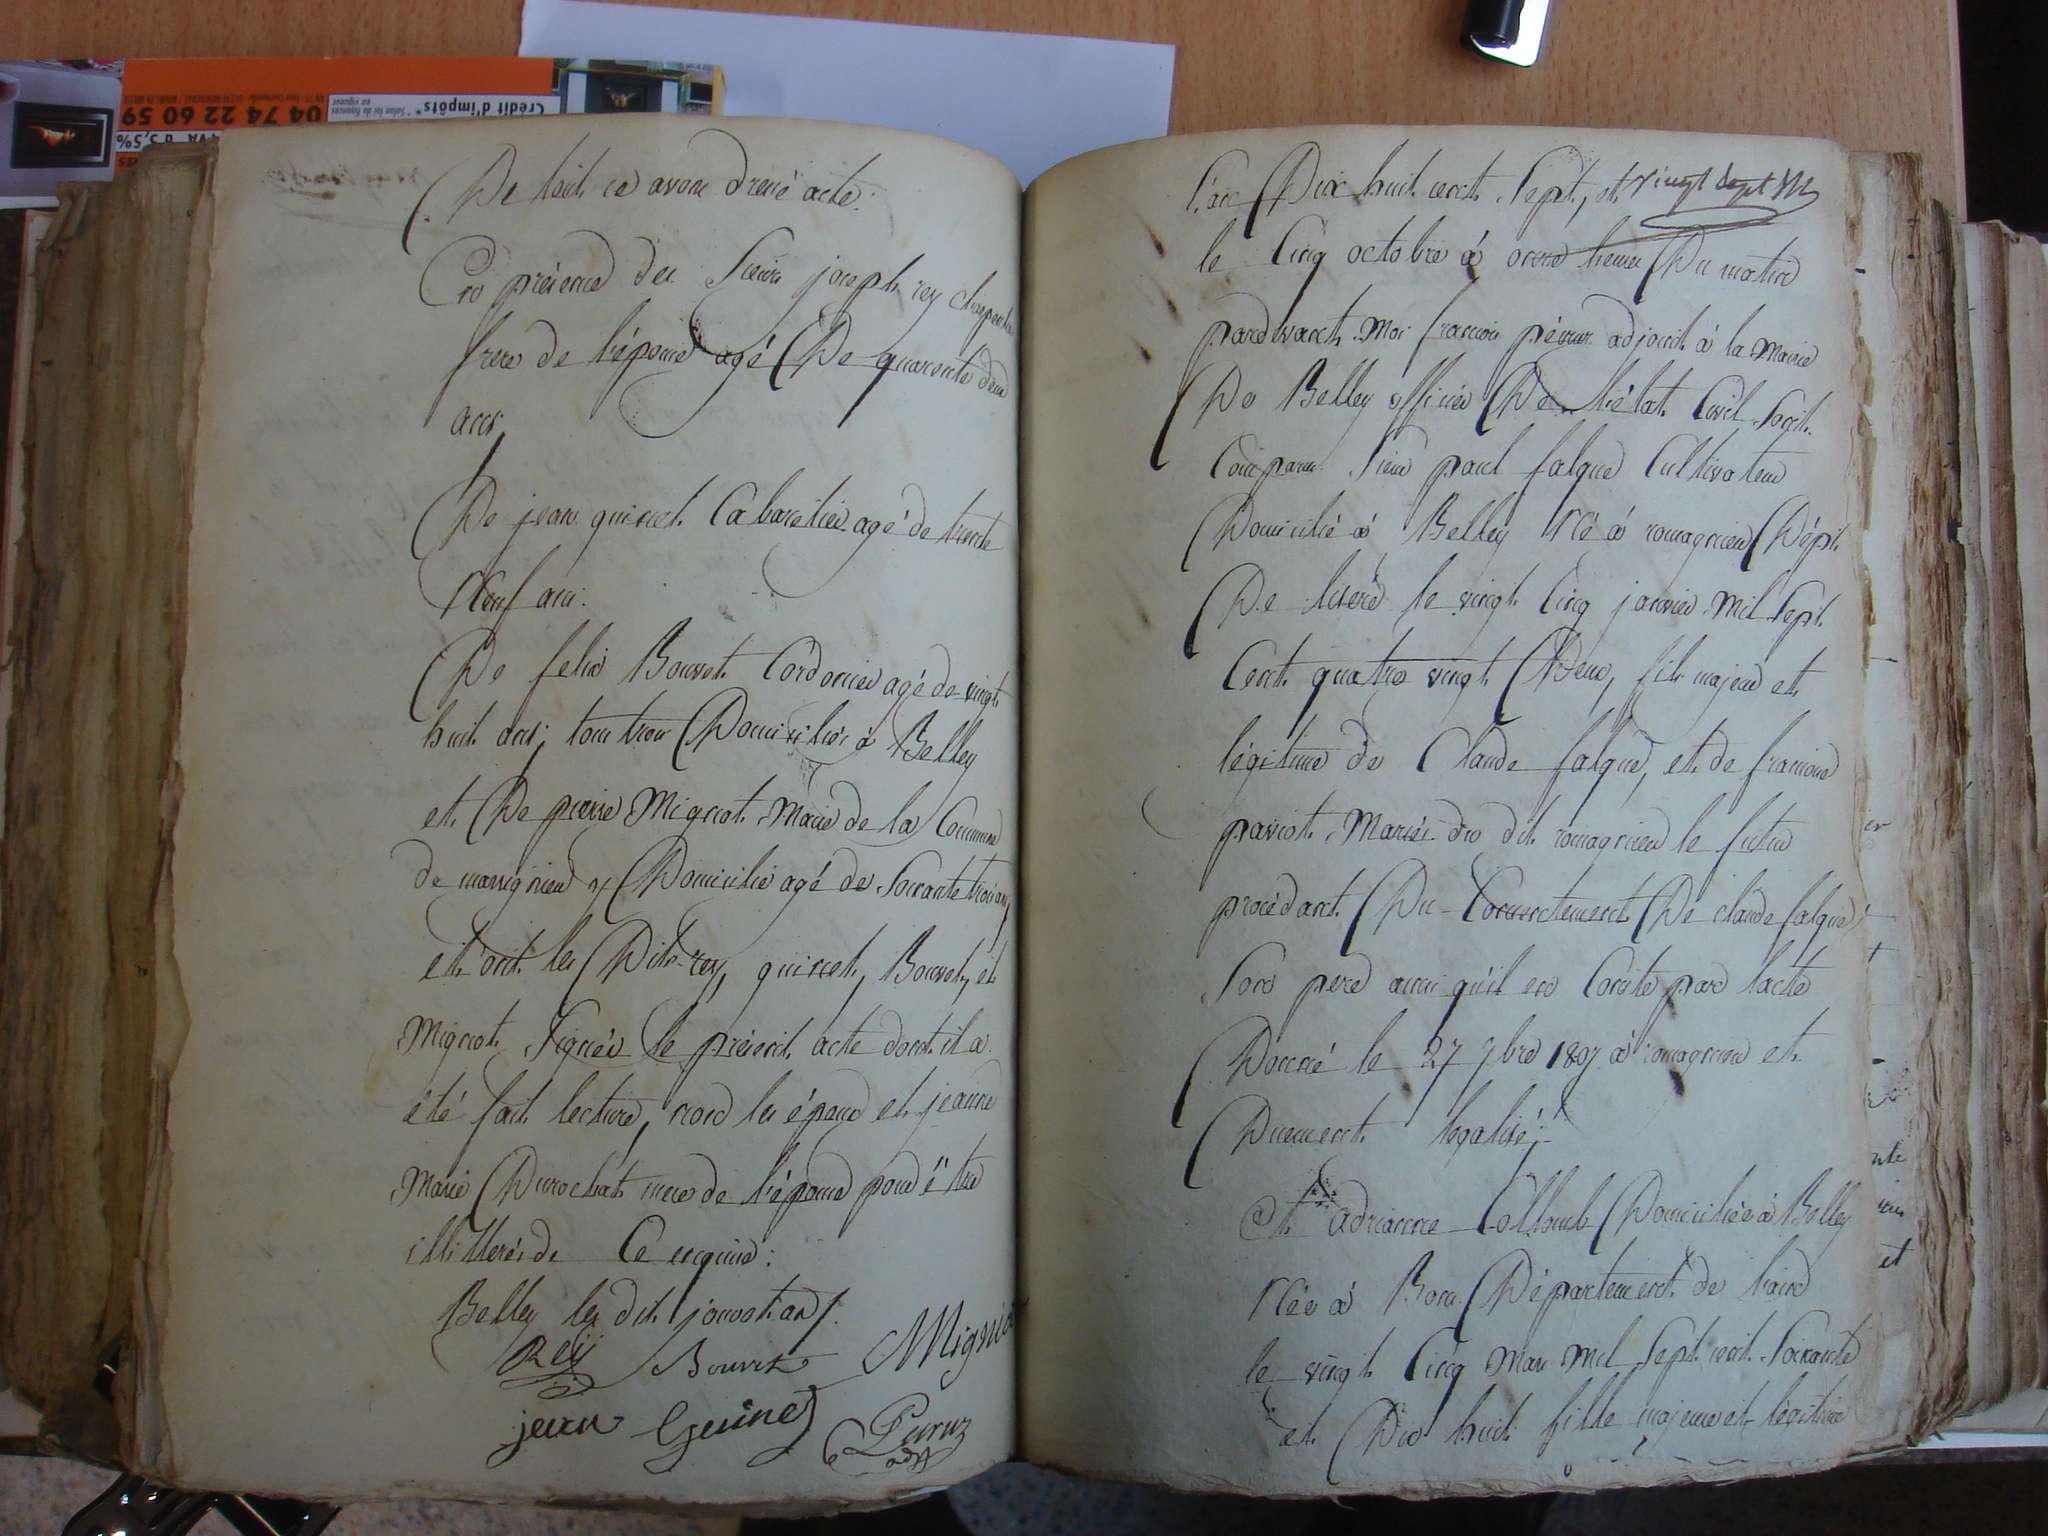 Crédit d'impôts*
04 74 22 60 59
TVA à 5,5%
De tout ce avons dressé acte :
En présence des Sieurs joseph rey charpentier
frere de l'épouse agé De quarante deux
ans,
De jean guinet Cabaretier agé de trente
Neuf ans :
De felix Bouvet Cordonier agé de vingt
huit ans, tous trois Domiciliés à Belley
et De pierre Mignot Maire de la Commune
de massignieu y Domicilié agé de Soixante trois ans,
et ont les Dits rey, guinet, Bouvet, et
Mignot Signés le présent acte dont il a
été fait lecture, non les époux et jeanne
Marie Durochat mere de l'épouse pour être
illitterés de Ce enquis :
Belley les dits jour et an /.
Rey Bouvet Mignot
jean Guinet Peruz
adjt
L'an Dix huit cent Sept, et vingt sept
le Cinq octobre à onze heures Du matin
pardevant Moi francois péruz adjoint à la Mairie
De Belley officier De l'état Civil Sont
Comparus Sieur paul falque Cultivateur
Domicilié à Belley Né à romagnieu Dépt.
De lisère le vingt Cinq janvier Mil Sept
Cent quatre vingt Deux, fils majeur et
légitime de Claude falque, et de francoise
paviot Mariés du dit romagnieu le futur
procédant Du Consentement De claude falque
Son pere ainsi qu'il en Conste par l'acte
Donné le 27 7bre 1807 à romagnieu et
Duement légalisé ;
Et adrianne Collomb Domiciliée à Belley
Née à Bons Département de l'ain
le vingt Cinq Mars Mil Sept cent Soixante
et Dix huit fille majeure et légitime